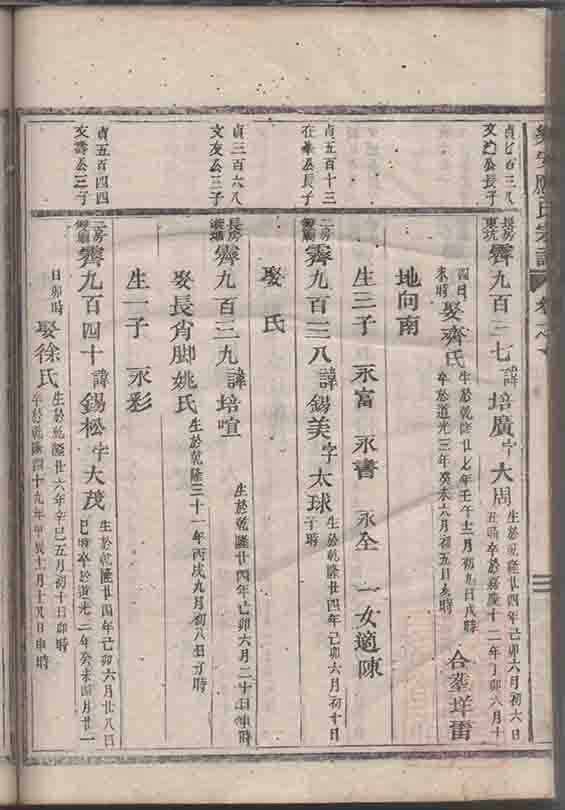 貞七百三八
文　公長子
長房
東坑
霽九百三七 諱培廣字大周 生於乾隆廿四年己卯六月初六日
丑時卒於嘉慶十二年丁卯六月十
四日
未時
娶齊氏 生於乾隆廿七年壬午十二月初九日戌時
卒於道光三年癸未六月初五日亥時
合塟垟
地向南
生三子 永富 永書 永全 一女適陳
貞五百十三
在　公長子
二房
霽九百三八 諱錫美字太球 生於乾隆廿四年己卯六月初十日
子時
娶 氏
貞三百六八
文友公三子
長房
霽九百三九 諱培喧 生於乾隆廿四年己卯六月二十日申時
娶長育脚姚氏 生於乾隆三十一年丙戌九月初八日　時
生一子 永彩
貞五百四四
文壽公三子
二房
霽九百四十 諱錫松字大茂 生於乾隆廿四年己卯六月廿八日
巳時卒於道光二年癸未四月廿一
日卯時
娶徐氏 生於乾隆廿六年辛巳五月初十日卯時
卒於乾隆四十九年甲辰十月十又日申時